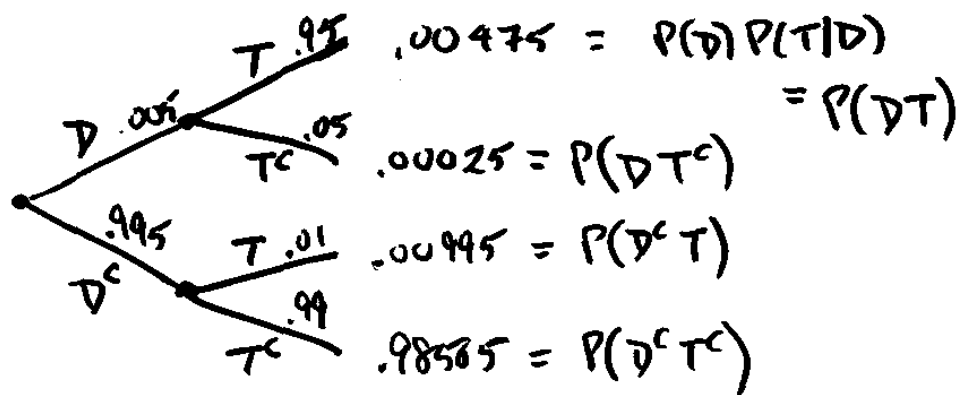 T .95 .00475 = P(D)P(T|D)
= P(DT)
D .005
T^C .05 .00025 = P(DT^C)
.995
D^C
T .01 .00995 = P(D^C T)
T^C .99 .98505 = P(D^C T^C)